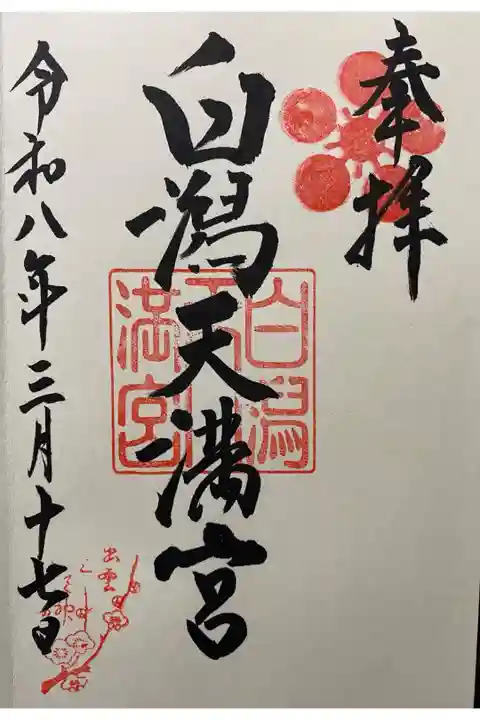 奉拝
白潟天満宮
白潟
天
満宮
令和八年三月十七日
出雲